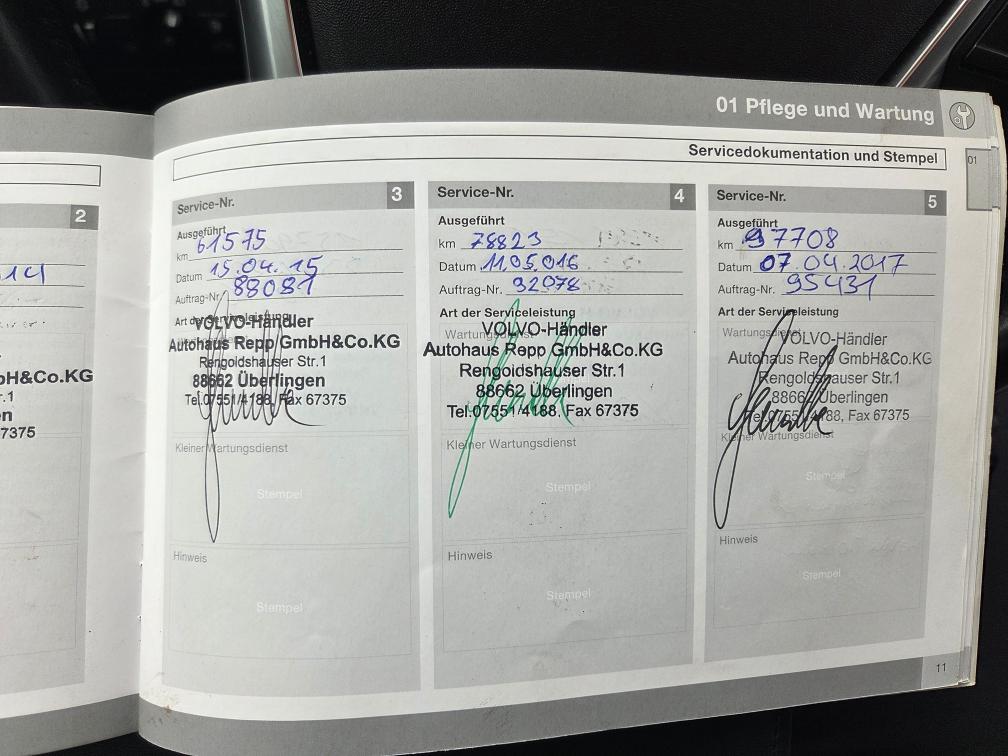 01 Pflege und Wartung
Servicedokumentation und Stempel
01
2
14
H&Co.KG
.1
n
7375
Service-Nr. 3
Ausgeführt
km 61575
Datum 15.04.15
Auftrag-Nr. 88081
Art der Serviceleistung
VOLVO-Händler
Autohaus Repp GmbH&Co.KG
Rengoldshauser Str.1
88662 Überlingen
Tel.07551/4188, Fax 67375
Kleiner Wartungsdienst
Stempel
Hinweis
Stempel
Service-Nr. 4
Ausgeführt
km 78823
Datum 11.05.016
Auftrag-Nr. 92078
Art der Serviceleistung
Wartungsdienst
VOLVO-Händler
Autohaus Repp GmbH&Co.KG
Rengoldshauser Str.1
88662 Überlingen
Tel.07551/4188, Fax 67375
Kleiner Wartungsdienst
Stempel
Hinweis
Stempel
Service-Nr. 5
Ausgeführt
km 97708
Datum 07.04.2017
Auftrag-Nr. 95431
Art der Serviceleistung
Wartungsdienst
VOLVO-Händler
Autohaus Repp GmbH&Co.KG
Rengoldshauser Str.1
88662 Überlingen
Tel.07551/4188, Fax 67375
Kleiner Wartungsdienst
Stempel
Hinweis
Stempel
11